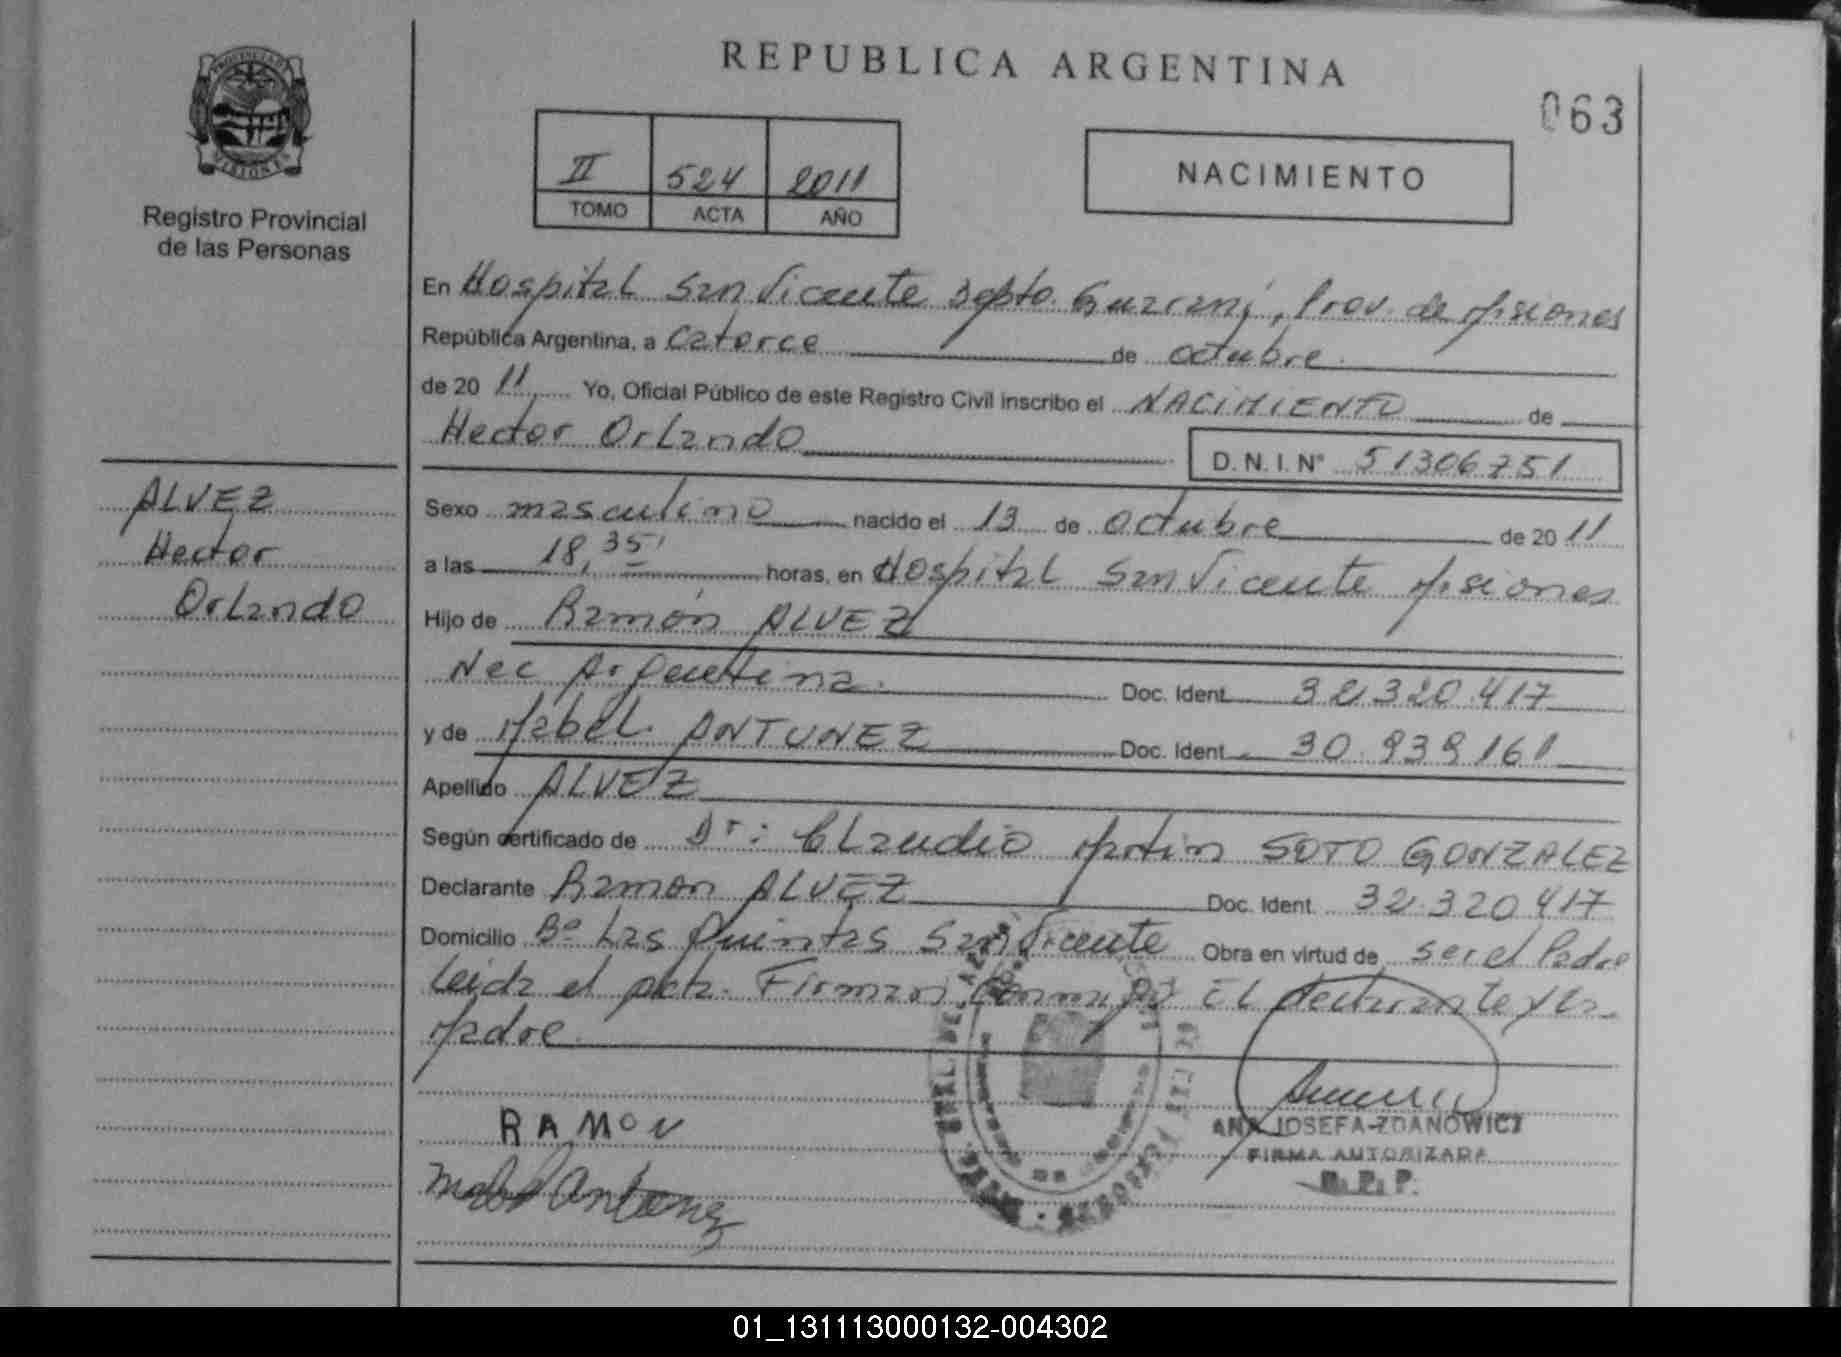 REPUBLICA ARGENTINA
063
PROVINCIA DE
MISIONES
Registro Provincial
de las Personas
II 524 2011
TOMO ACTA AÑO
NACIMIENTO
En Hospital San Vicente Depto. Guaraní, Prov. de Misiones
República Argentina, a Catorce de octubre
de 2011 Yo, Oficial Público de este Registro Civil inscribo el NACIMIENTO de
Hector Orlando
D. N. I. N° 51306751
ALVEZ
Hector
Orlando
Sexo masculino nacido el 13 de octubre de 2011
a las 18,35 horas, en Hospital San Vicente Misiones
Hijo de Ramón ALVEZ
Nac Argentina. Doc. Ident. 32.320.417
y de Mabel ANTUNEZ Doc. Ident. 30.939.161
Apellido ALVEZ
Según certificado de Dr: Claudio Martin SOTO GONZALEZ
Declarante Ramon ALVEZ Doc. Ident. 32.320.417
Domicilio Bº Las Quintas San Vicente Obra en virtud de ser el Padre
Leida el acta. Firman conmigo El declarante y la
Madre.
RAMON
Mabel Antunez
ANA JOSEFA ZDANOWICZ
FIRMA AUTORIZADA
R.P.P.
01_131113000132-004302